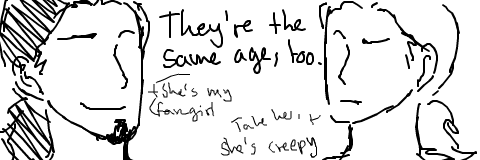 They're the
same age, too.
She's my
fangirl
Take her,
she's creepy